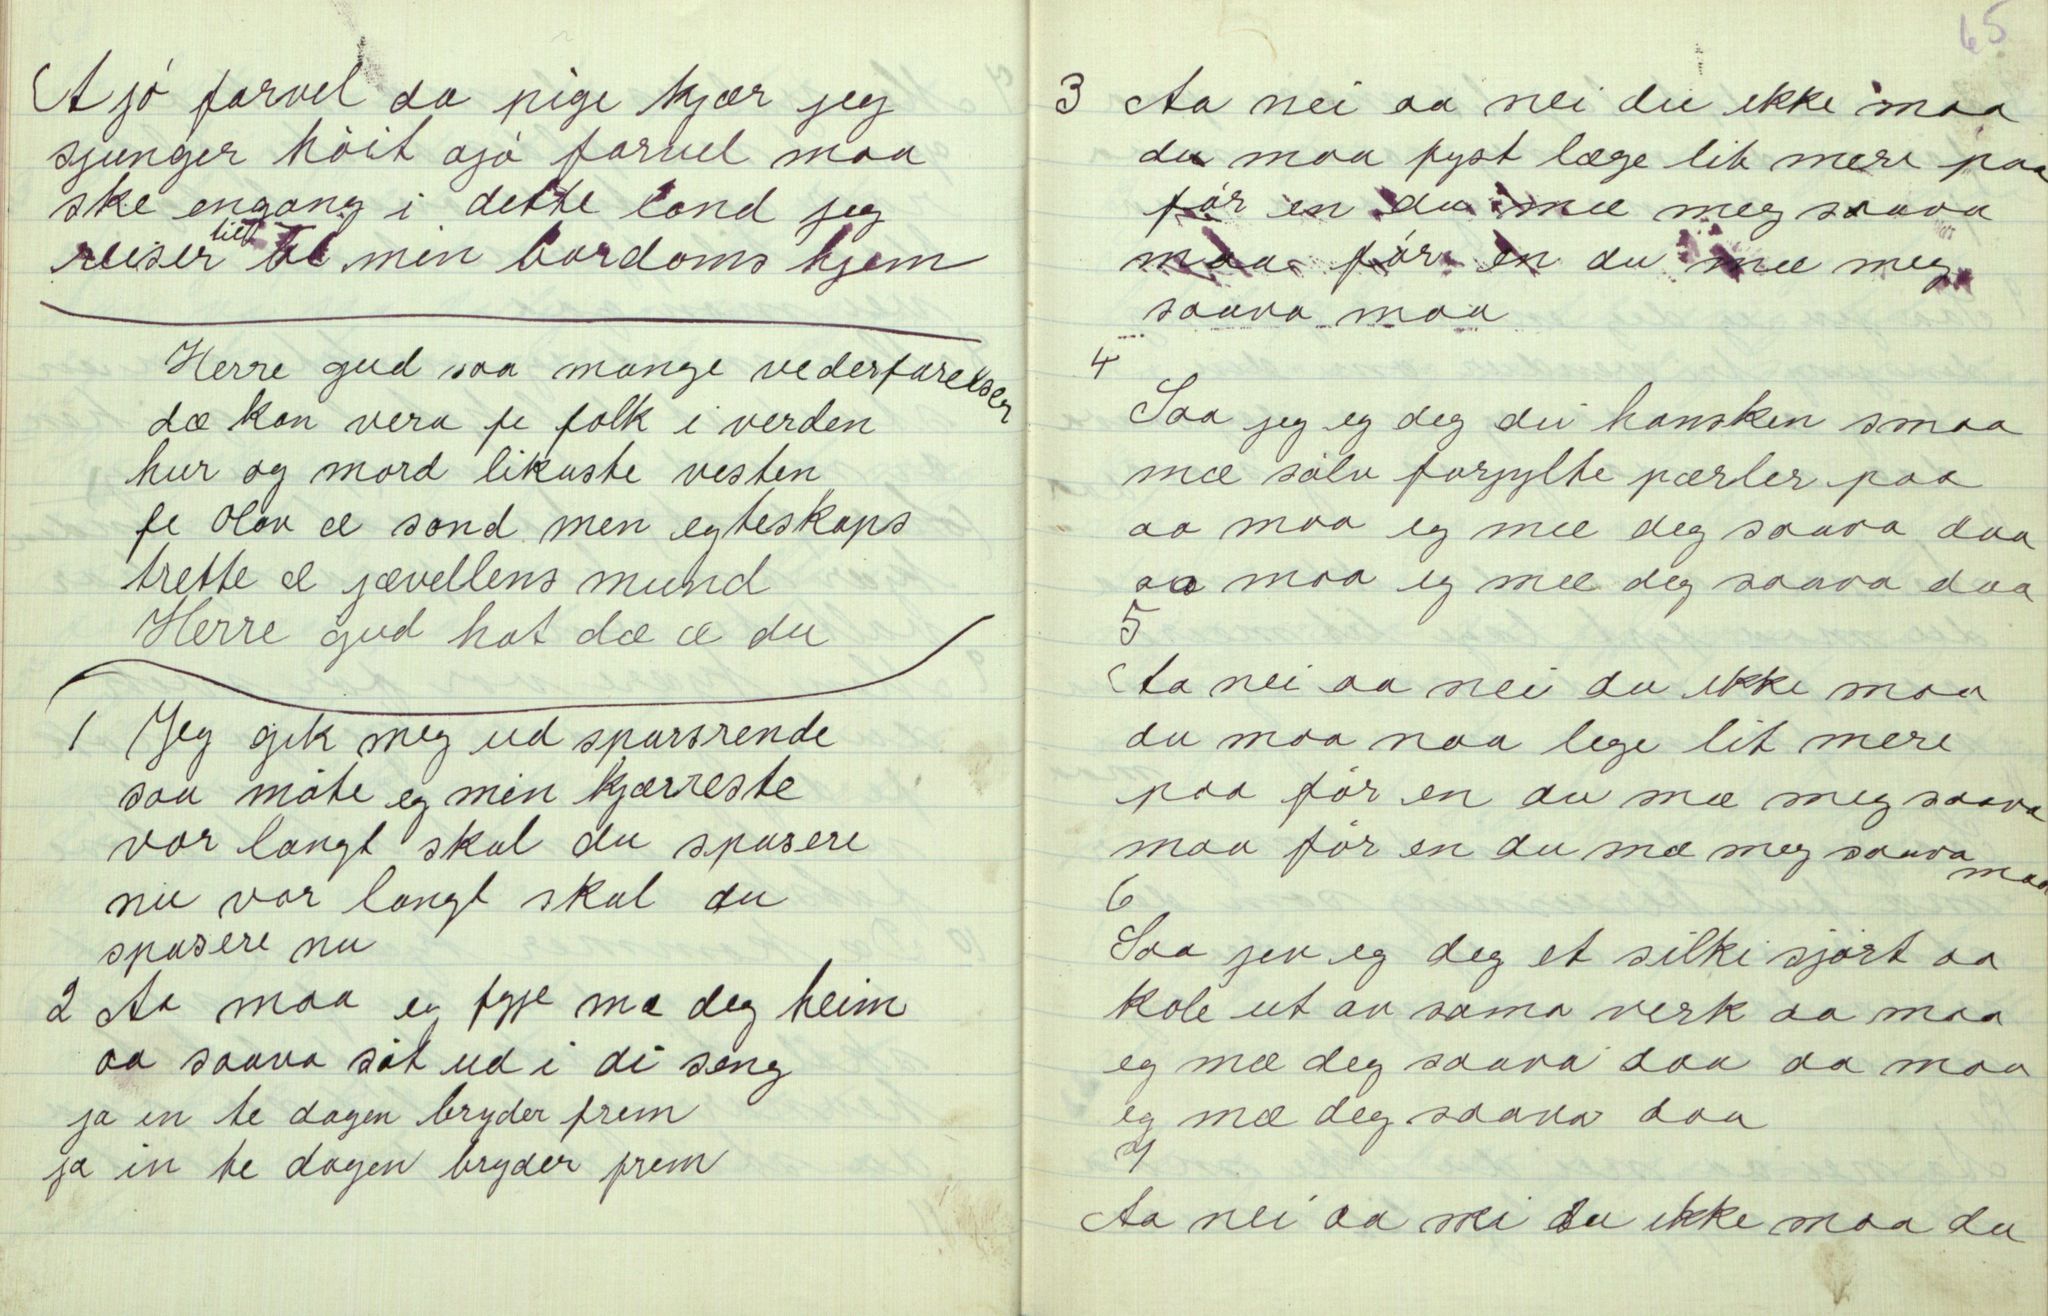 Ajó farvel da pige kjær jeg
sjunger höit ajó farvel maa
ske engang i dette land jeg
reiser til min bardoms hjem
Herre gud saa mange vederfarelser
dæ kan vera fe folk i verden
hur og mord likaste vesten
fe Olav æ sand men egteskaps
trette æ jævellens mund
Herre gud hat dæ æ du
1 Jeg gik meg ud spasrende
saa móte eg min kjærreste
vor langt skal du spasere
nu vor langt skal du
spasere nu
2 Aa maa eg fyje mæ deg heim
aa saava sót ud i di seng
ja en te dagen bryder frem
ja in te dagen bryder frem
65
3 Aa nei aa nei du ikke maa
du maa fyst læge lit mere paa
fór en du mæ meg saava
maa fór en du mæ meg
saava maa
4
Saa jeg eg deg du hansken smaa
mæ sólv forjylte pærler paa
aa maa eg mæ deg saava daa
aa maa eg mæ deg saava daa
5
Aa nei aa nei du ikke maa
du maa naa lege lit mere
paa fór en du mæ meg saava
maa fór en du mæ meg saava maa
6
Saa jev eg deg et silki sjórt aa
kole ut av sama verk aa maa
eg mæ deg saava daa aa maa
eg mæ deg saava daa
7
Aa nei aa nei du ikke maa du